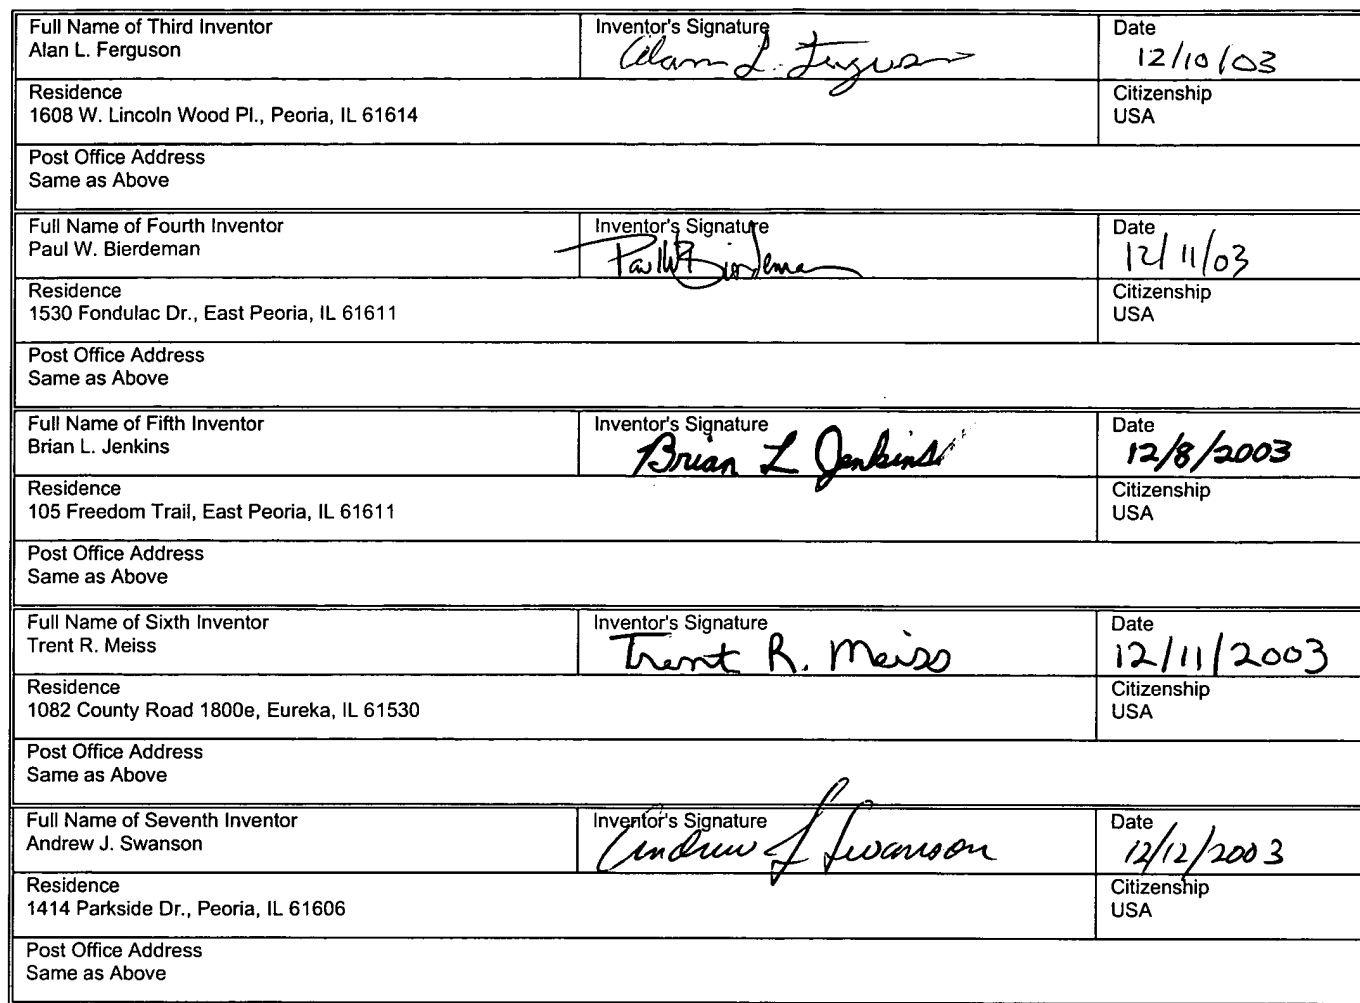 Full Name of Third Inventor
Alan L. Ferguson
Inventor's Signature
Alan L. Ferguson
Date
12/10/03
Residence
1608 W. Lincoln Wood Pl., Peoria, IL 61614
Citizenship
USA
Post Office Address
Same as Above
Full Name of Fourth Inventor
Paul W. Bierdeman
Inventor's Signature
Paul W Bierdeman
Date
12/11/03
Residence
1530 Fondulac Dr., East Peoria, IL 61611
Citizenship
USA
Post Office Address
Same as Above
Full Name of Fifth Inventor
Brian L. Jenkins
Inventor's Signature
Brian L Jenkins
Date
12/8/2003
Residence
105 Freedom Trail, East Peoria, IL 61611
Citizenship
USA
Post Office Address
Same as Above
Full Name of Sixth Inventor
Trent R. Meiss
Inventor's Signature
Trent R. Meiss
Date
12/11/2003
Residence
1082 County Road 1800e, Eureka, IL 61530
Citizenship
USA
Post Office Address
Same as Above
Full Name of Seventh Inventor
Andrew J. Swanson
Inventor's Signature
Andrew J Swanson
Date
12/12/2003
Residence
1414 Parkside Dr., Peoria, IL 61606
Citizenship
USA
Post Office Address
Same as Above